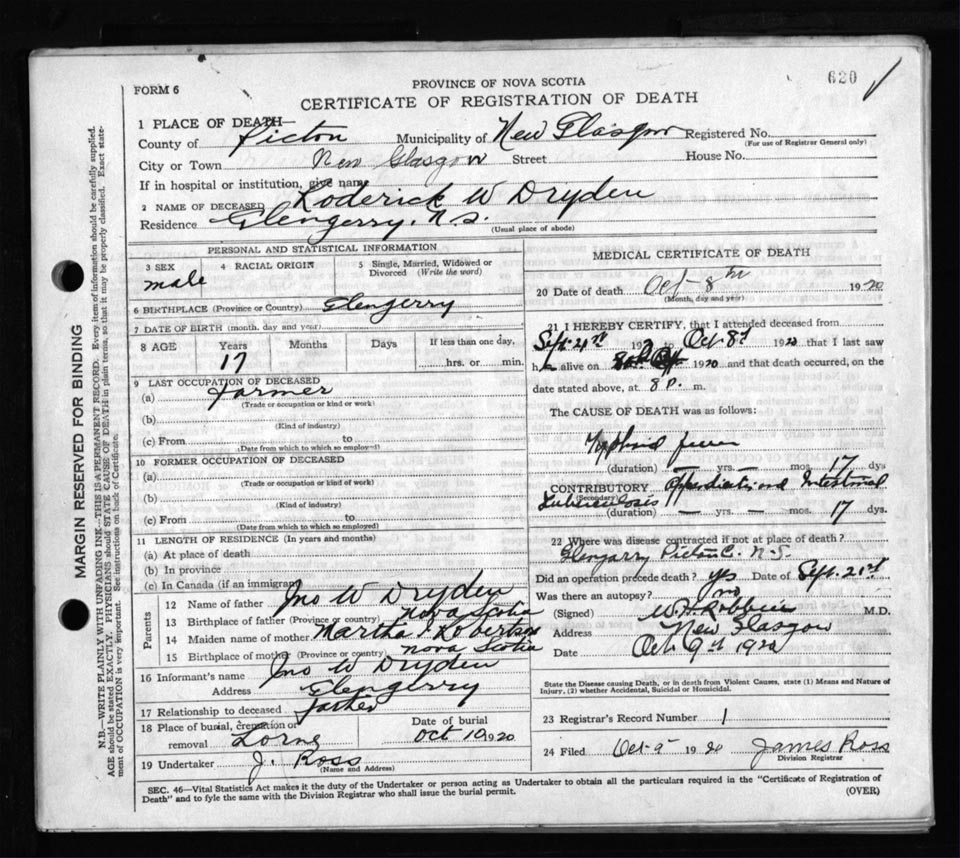 620
FORM 6
PROVINCE OF NOVA SCOTIA
CERTIFICATE OF REGISTRATION OF DEATH
1 PLACE OF DEATH—
County of Pictou Municipality of New Glasgow Registered No.
(For use of Registrar General only)
City or Town New Glasgow Street House No.
If in hospital or institution, give name
2 NAME OF DECEASED Roderick W Dryden
Residence Glengerry. N.S.
(Usual place of abode)
PERSONAL AND STATISTICAL INFORMATION
3 SEX male 4 RACIAL ORIGIN 5 Single, Married, Widowed or Divorced (Write the word)
6 BIRTHPLACE (Province or Country) Glengerry
7 DATE OF BIRTH (month, day and year)
8 AGE Years Months Days If less than one day,
17 hrs. or min.
9 LAST OCCUPATION OF DECEASED
(a) farmer
(Trade or occupation or kind or work)
(b)
(Kind of industry)
(c) From to
(Date from which to which so employed)
10 FORMER OCCUPATION OF DECEASED
(a)
(Trade or occupation or kind of work)
(b)
(Kind of industry)
(c) From to
(Date from which to which so employed)
11 LENGTH OF RESIDENCE (In years and months)
(a) At place of death
(b) In province
(c) In Canada (if an immigrant)
Parents
12 Name of father Jno W Dryden
13 Birthplace of father (Province or country) Nova Scotia
14 Maiden name of mother Martha J. Robertson
15 Birthplace of mother (Province or country) Nova Scotia
16 Informant's name Jno W Dryden
Address Glengerry
17 Relationship to deceased father
18 Place of burial, cremation or removal Lorne Date of burial Oct 10 1920
19 Undertaker J. Ross
(Name and Address)
MEDICAL CERTIFICATE OF DEATH
20 Date of death Oct- 8th 1920
(Month, day and year)
21 I HEREBY CERTIFY, that I attended deceased from
Sept 21st 192 to Oct 8th 1920 that I last saw
h alive on 1920 and that death occurred, on the
date stated above, at 8 P. m.
The CAUSE OF DEATH was as follows:
Typhoid fever
(duration) — yrs. — mos. 17 dys
CONTRIBUTORY Appendicitis and Intestinal
(Secondary)
Tuberculosis
(duration) — yrs. — mos. 17 dys.
22 Where was disease contracted if not at place of death?
Glengarry Pictou C. N.S.
Did an operation precede death? yes Date of Sept. 21st
Was there an autopsy? no
(Signed) M.D.
Address New Glasgow
Date Oct. 9th 1920
State the Disease causing Death, or in death from Violent Causes, state (1) Means and Nature of
Injury, (2) whether Accidental, Suicidal or Homicidal.
23 Registrar's Record Number 1
24 Filed Oct-9 1920 James Ross
Division Registrar
SEC. 46—Vital Statistics Act makes it the duty of the Undertaker or person acting as Undertaker to obtain all the particulars required in the "Certificate of Registration of
Death" and to fyle the same with the Division Registrar who shall issue the burial permit. (OVER)
MARGIN RESERVED FOR BINDING
N.B.—WRITE PLAINLY WITH UNFADING INK—THIS IS A PERMANENT RECORD. Every item of information should be carefully supplied.
AGE should be stated EXACTLY. PHYSICIANS should STATE CAUSE OF DEATH in plain terms, so that it may be properly classified. Exact state-
ment of OCCUPATION is very important. See instructions on back of Certificate.